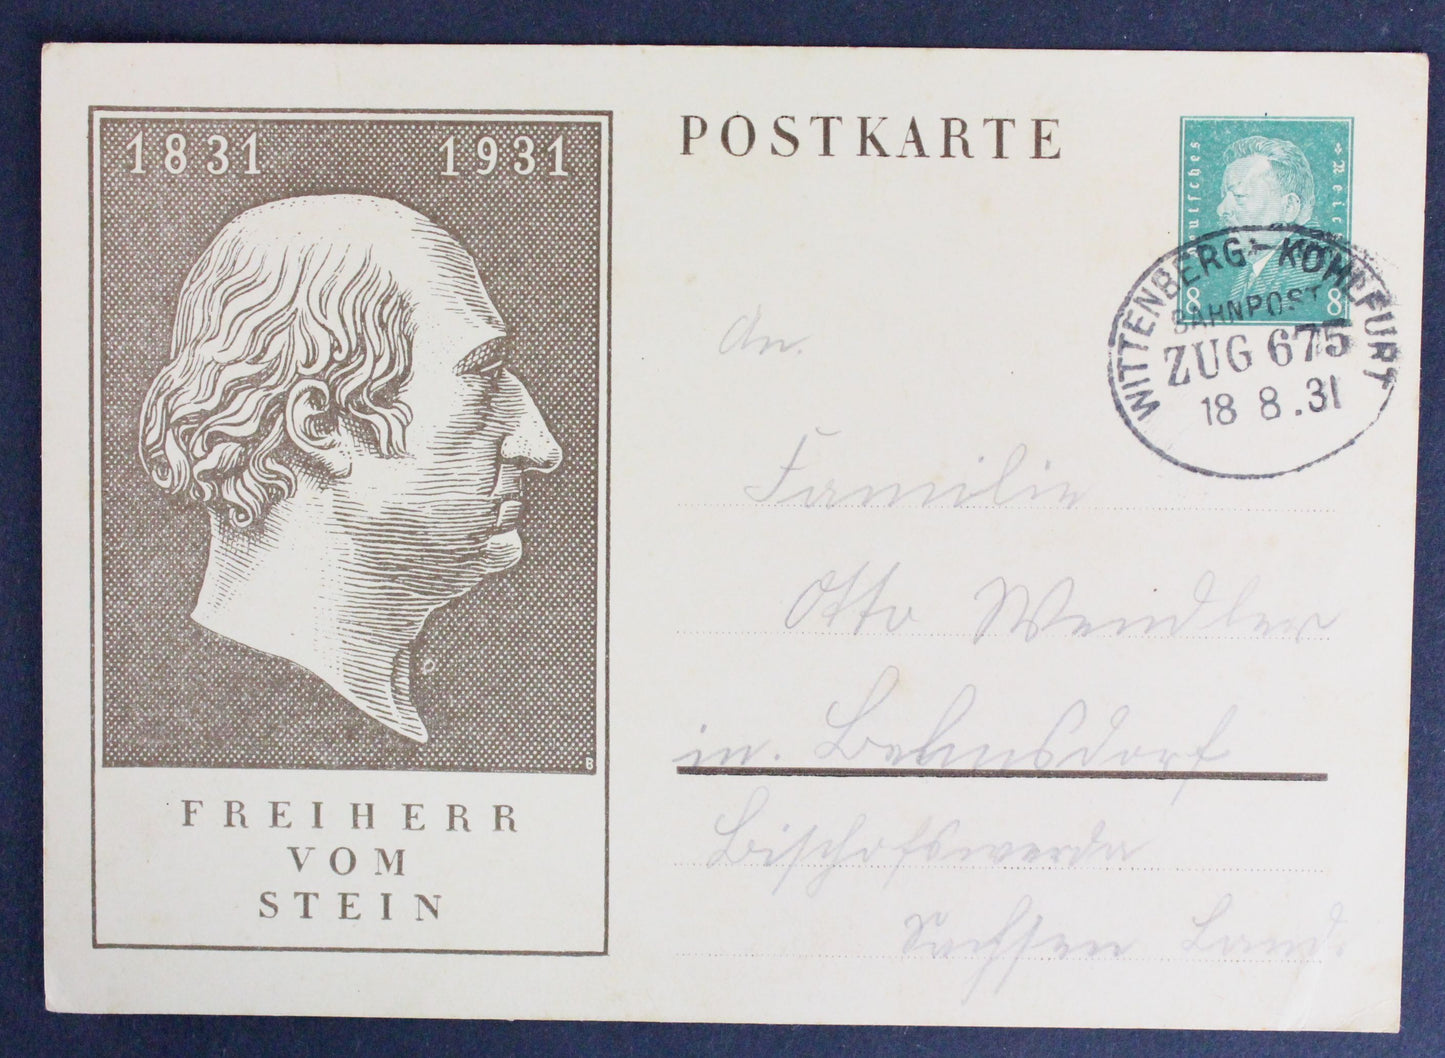 1831 1931
FREIHERR
VOM
STEIN
B
POSTKARTE
Deutsches Reich
8 8
WITTENBERG - KOHLFURT
BAHNPOST
ZUG 675
18 8.31
An.
Familie
Otto Wendler
in.
Bischofswerda
Sachsen Land.